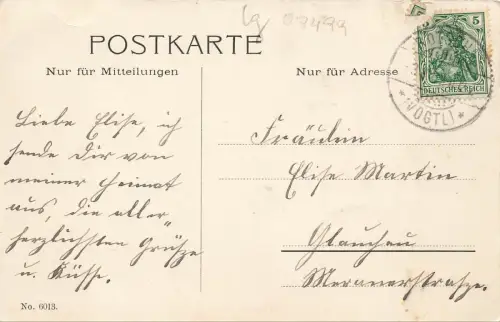 POSTKARTE
Nur für Mitteilungen
Nur für Adresse
5
DEUTSCHES REICH
* (VOGTL) *
Liebe Elise, ich
sende Dir von
meiner Heimat
aus, die aller-
herzlichsten Grüße
u. Küsse.
Fräulein
Elise Martin
Glauchau
Meranerstraße.
No. 6013.